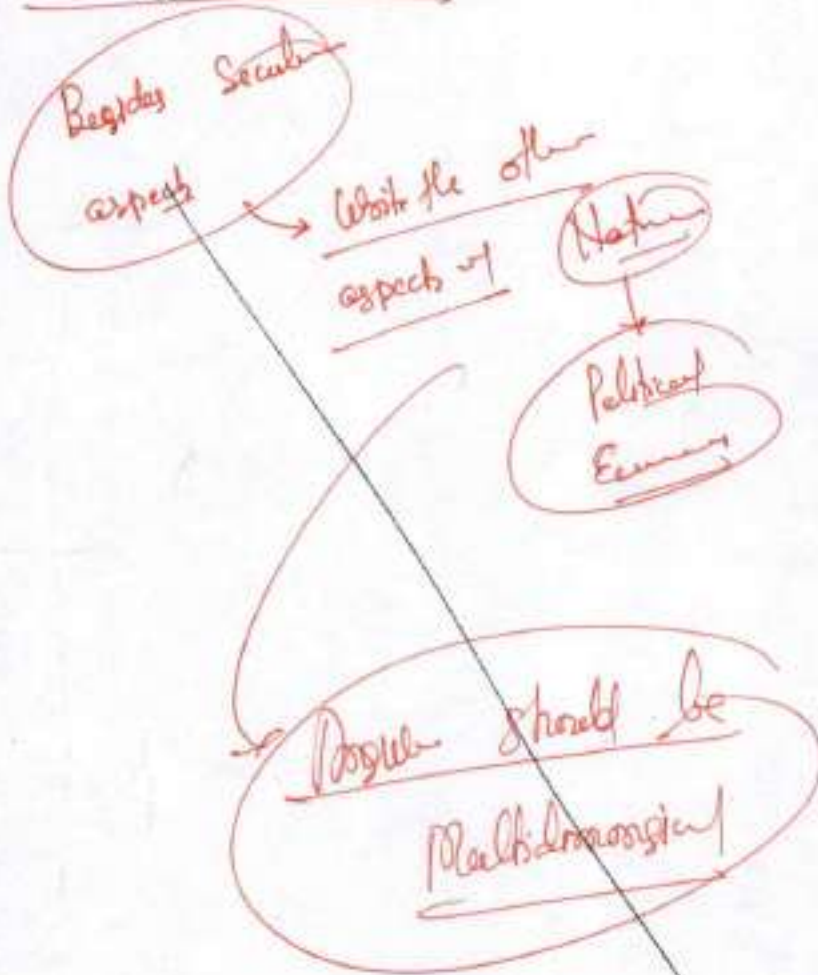 Besides Secular
aspects
Write the other
aspects of Nature
Political
Economy
Answer should be
Multidimensional